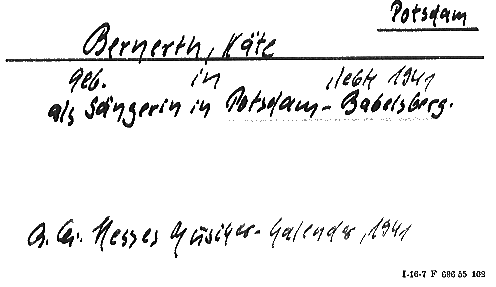 Potsdam
Bernerth, Käte
geb. in , lebte 1941
als Sängerin in Potsdam-Babelsberg.
Hesses Musiker-Kalender, 1941
I-16-7 F 686 55 109